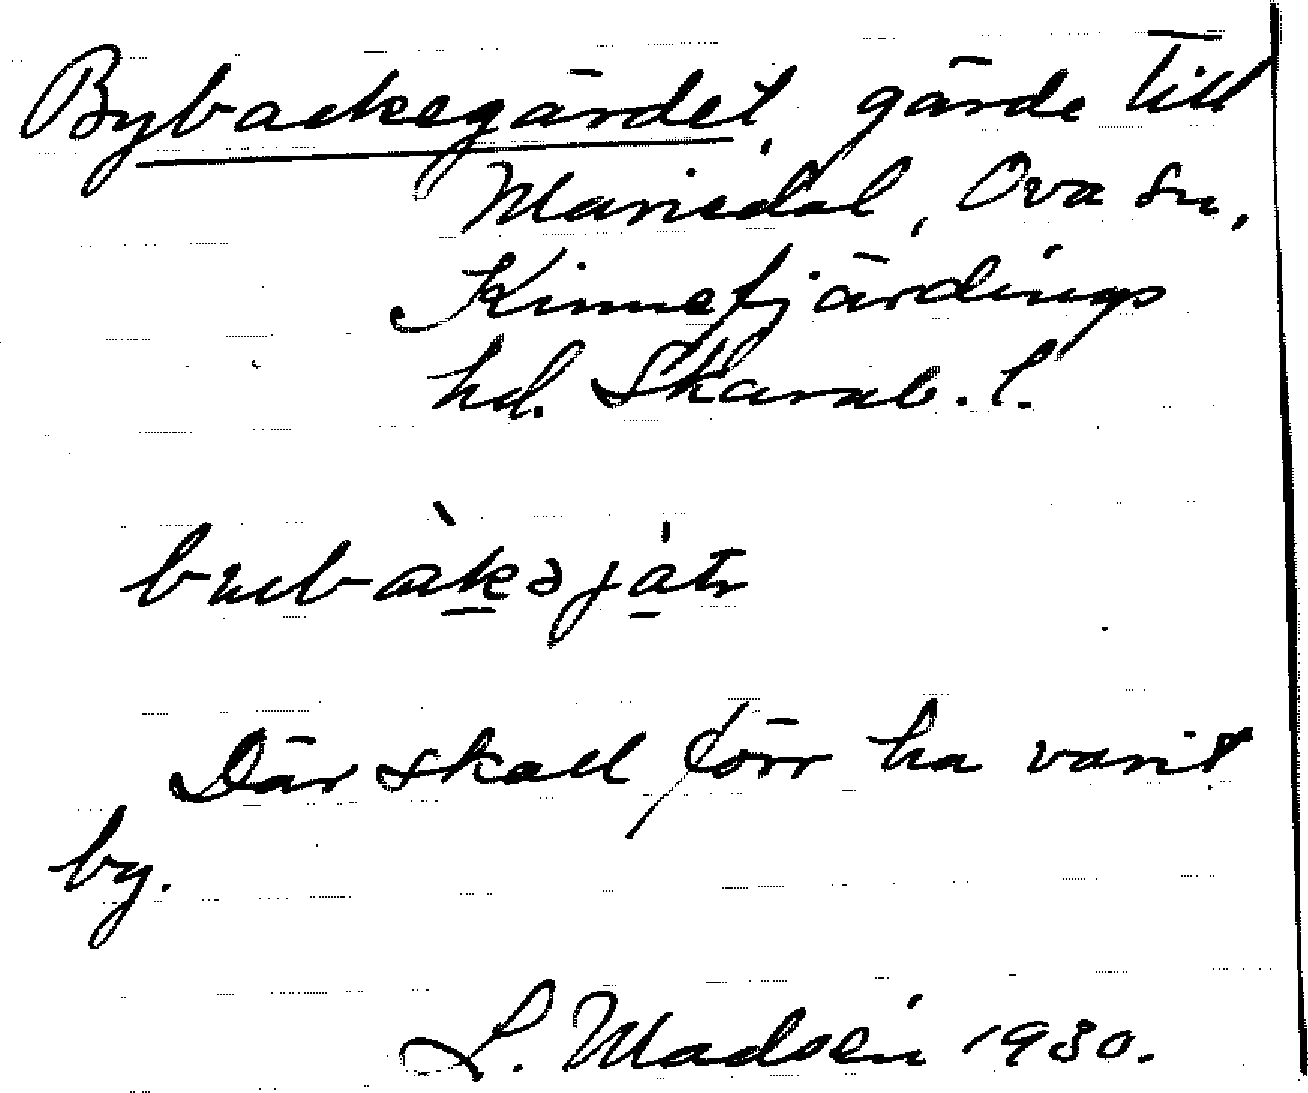 Bybackegärdet, gärde till
Mariedal, Ova sn,
Kinnefjärdings
hd. Skarab. l.
Där skall förr ha varit
by.
L. Madsén 1930.